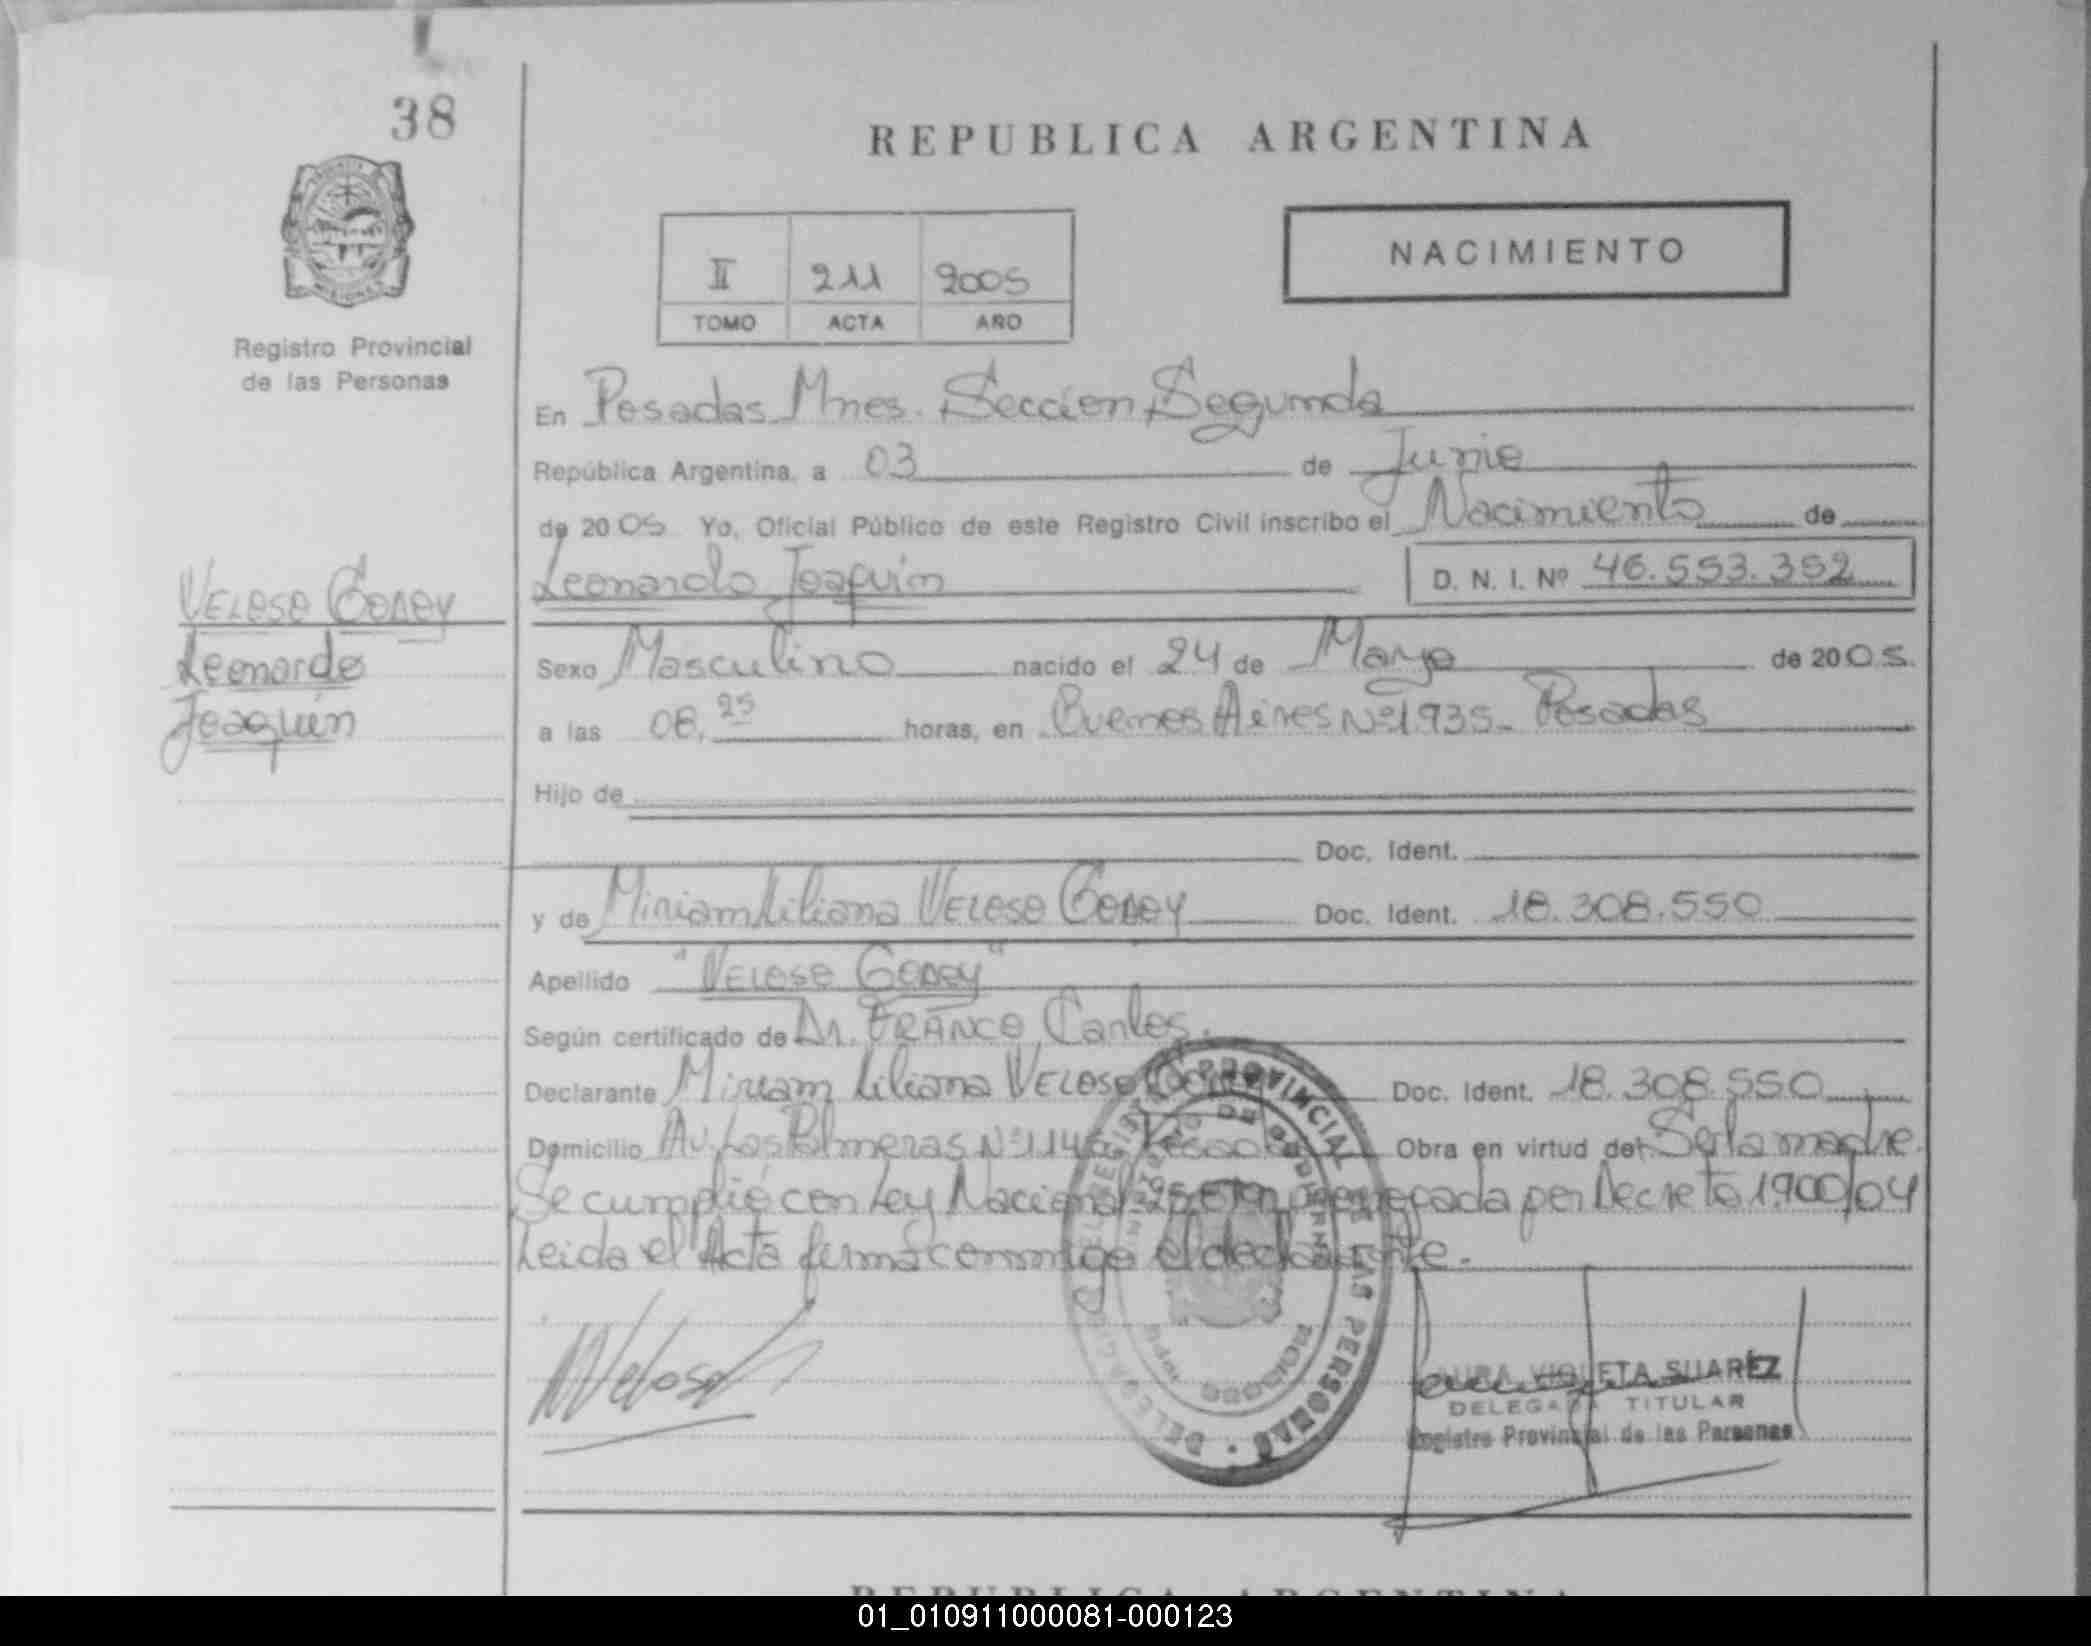 38
REPUBLICA ARGENTINA
NACIMIENTO
II 211 2005
TOMO ACTA AÑO
Registro Provincial
de las Personas
En Posadas Mnes. Sección Segunda
República Argentina, a 03 de Junio
de 2005 Yo, Oficial Público de este Registro Civil inscribo el Nacimiento de
Leonardo Joaquín D. N. I. Nº 46.553.352
VELOSO GODOY
Leonardo
Joaquín
Sexo Masculino nacido el 24 de Mayo de 2005.
a las 08,25 horas, en Buenos Aires Nº 1935 - Posadas
Hijo de
Doc. Ident.
y de Miriam Liliana VELOSO GODOY Doc. Ident. 18.308.550
Apellido "VELOSO GODOY"
Según certificado de Dr. FRANCO, Carlos.
Declarante Miriam Liliana VELOSO Doc. Ident. 18.308.550
Domicilio Av. Las Palmeras Nº Obra en virtud de: Ser la madre.
Se cumplió con Ley Nacional por Decreto 1.900/04
Leída el Acta firma conmigo el declarante.
MVeloso
REGISTRO PROVINCIAL DE LAS PERSONAS
LAURA VIOLETA SUAREZ
DELEGADA TITULAR
Registro Provincial de las Personas
REPUBLICA ARGENTINA
01_010911000081-000123